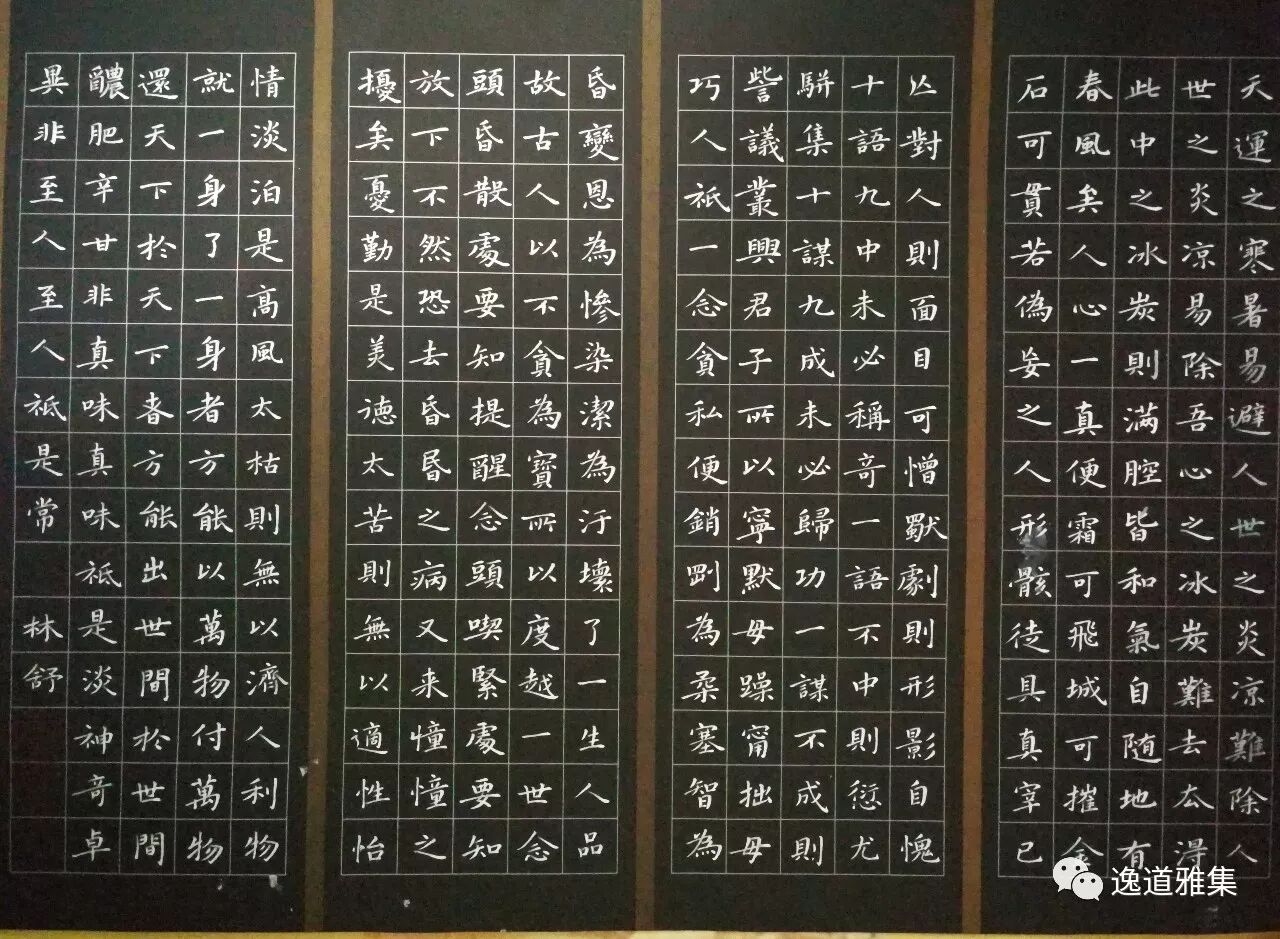 天運之寒暑易避人世之炎凉難除人
世之炎凉易除吾心之冰炭難去厺淂
此中之冰炭則滿腔皆和氣自随地有
春風矣人心一真便霜可飛城可摧金
石可貫若偽妄之人形骸徒具真宰已
亾對人則面目可憎獸劇則形影自愧
十語九中未必稱奇一語不中則愆尤
駢集十謀九成未必歸功一謀不成則
訾議叢興君子所以寧默毋躁甯拙毋
巧人祇一念貪私便銷剛為柔塞智為
昏變恩為慘染潔為汙壞了一生人品
故古人以不貪為寶所以度越一世念
頭昏散處要知提醒念頭喫緊處要知
放下不然恐去昏昬之病又来憧憧之
擾矣憂勤是美德太苦則無以適性怡
情淡泊是高風太枯則無以濟人利物
就一身了一身者方能以萬物付萬物
還天下於天下者方能出世間於世間
醲肥辛甘非真味真味祗是淡神奇卓
異非至人至人祗是常 林舒
逸道雅集